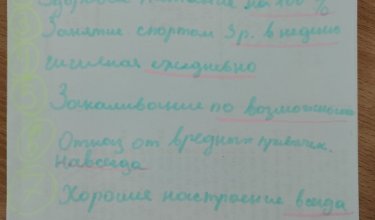 Здоровое питание на 100 %
Занятие спортом 3 р. в неделю
гигиена ежедневно
Закаливание по возможности
Отказ от вредных привычек.
навсегда
Хорошее настроение всегда